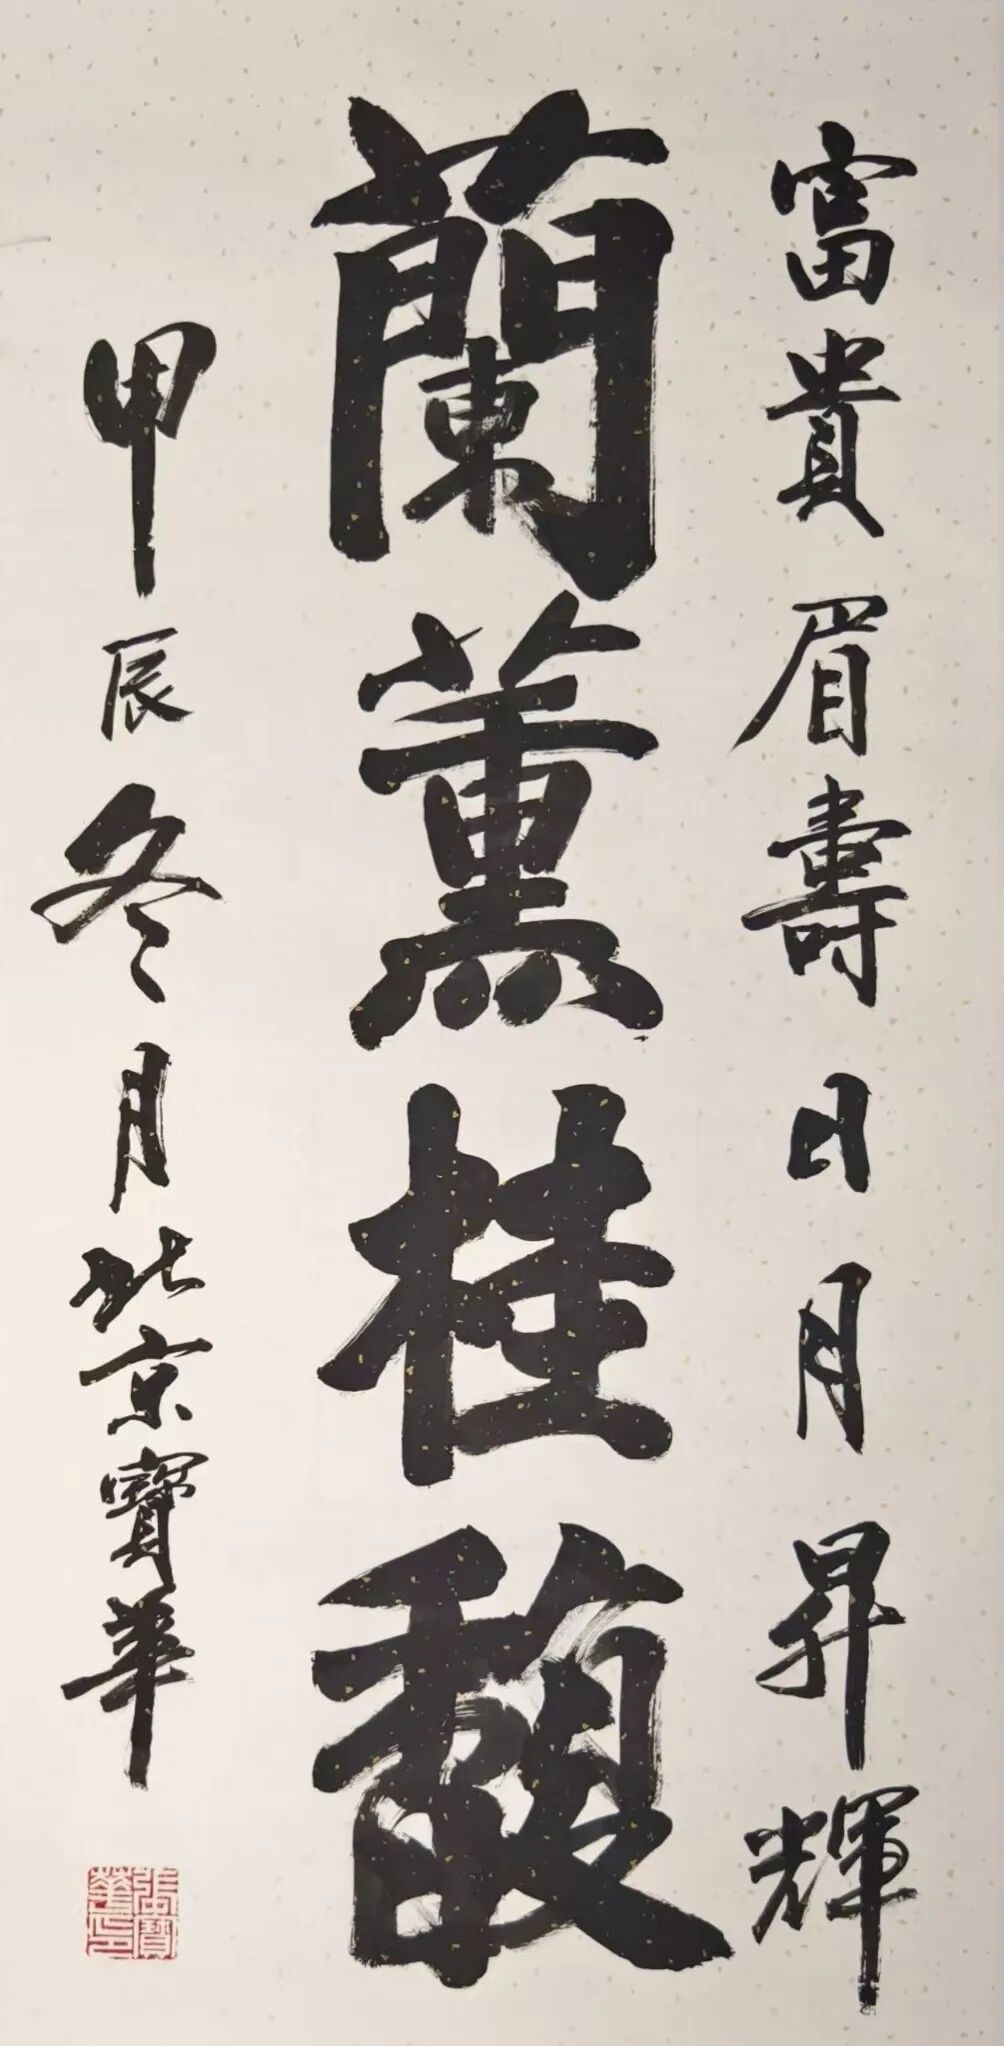 富貴眉壽日月昇輝
蘭薰桂馥
甲辰冬月北京寶華
張寶華印